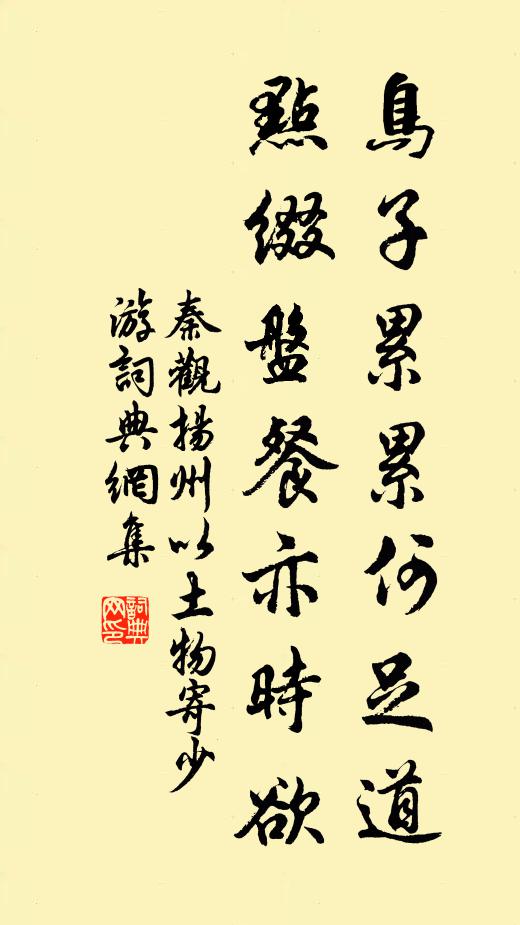 鳧子累累何足道
點綴盤餐亦時欲
秦觀揚州以土物寄少
游詞典網集
詞典
网印